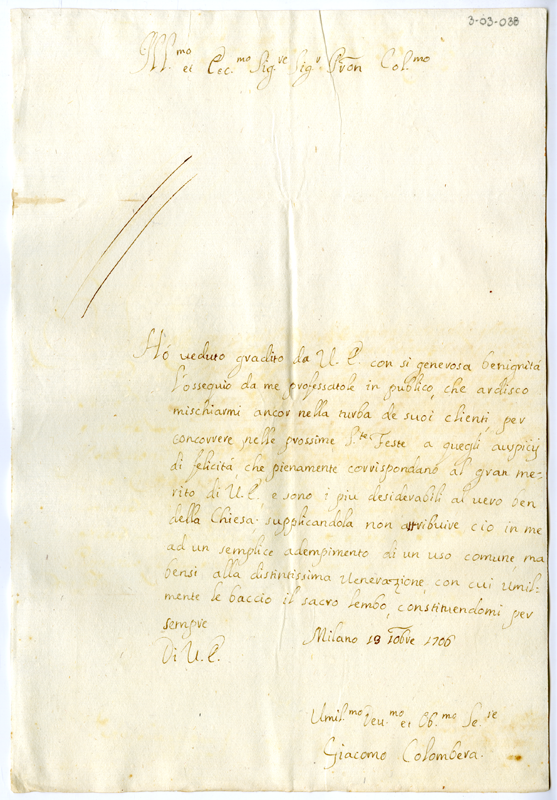 3-03-038
Ill.mo et Ecc.mo Sig.re Sig.r Pron Col.mo
Hó veduto gradito da V. E. con si generosa benignitá
l'ossequio da me professatole in publico, che ardisco
mischiarmi ancor nella turba de suoi clienti, per
concorrere nelle prossime S.te Feste a quegli auspicij
di felicitá che pienamente corrispondano al gran me-
rito di V. E. e sono i piu desiderabili al vero ben
della Chiesa. supplicandola non attribuire cio in me
ad un semplice adempimento di un uso comune ma
bensi alla distintissima Venerazione, con cui umil-
mente le baccio il sacro lembo, constituendomi per
sempre
Milano 18 Xbre 1706
Di V. E.
Umil.mo Deu.mo et Ob.mo Se.re
Giacomo Colombera.